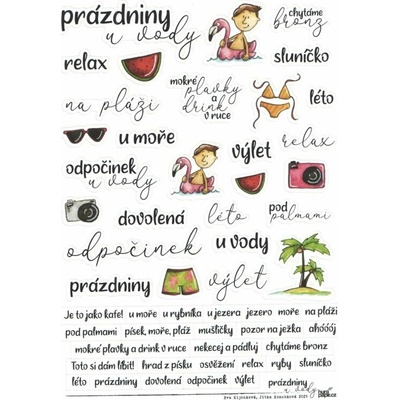 prázdniny
u vody
chytáme
bronz
relax
sluníčko
mokré
plavky
a
drink
v ruce
na pláži
léto
u moře
relax
výlet
odpočinek
u vody
dovolená
léto
pod
palmami
odpočinek
u vody
prázdniny
výlet
Je to jako kafe! u moře u rybníka u jezera jezero moře na pláži
pod palmami písek, moře, pláž mušličky pozor na ježka ahóóój
mokré plavky a drink v ruce nekecej a pádluj chytáme bronz
Toto si dám líbit! hrad z písku osvěžení relax ryby sluníčko
léto prázdniny dovolená odpočinek výlet prázdniny
u vody